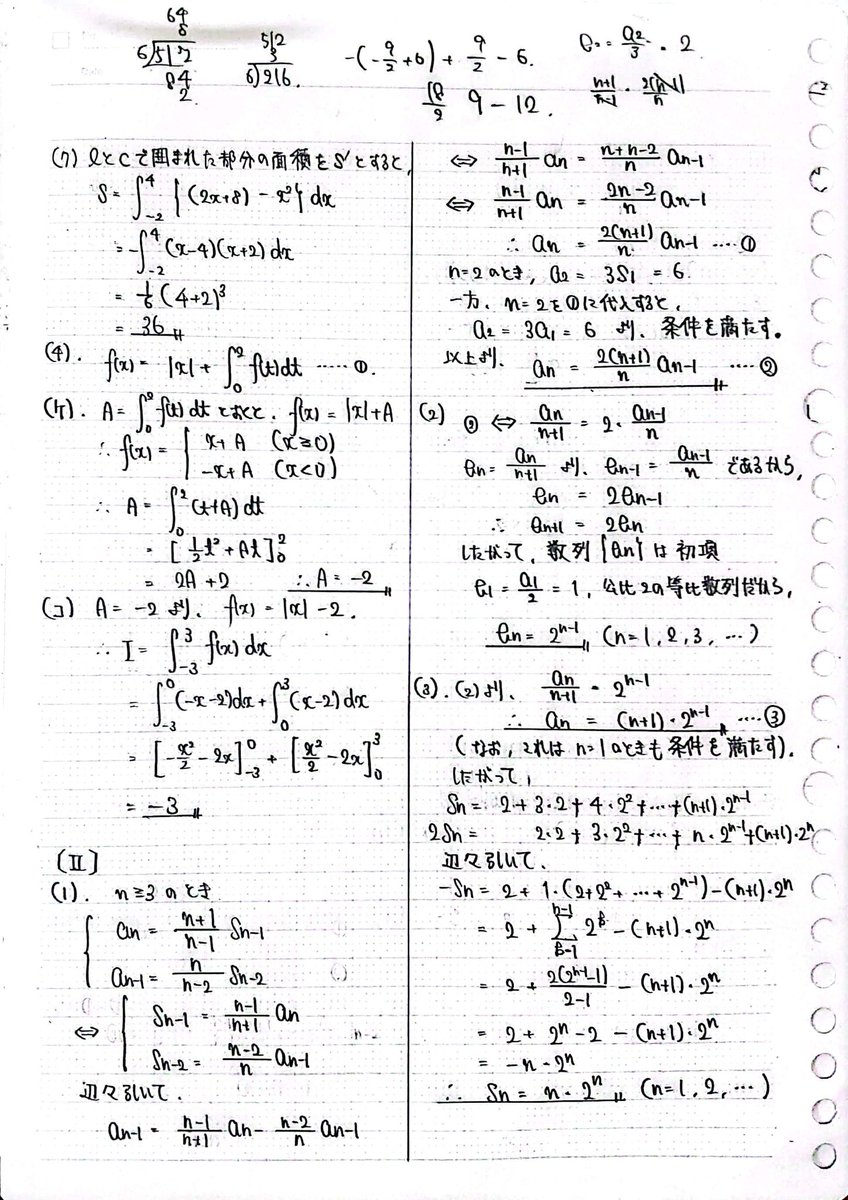 64
8
6)512
84
2
512
3
6)216
-(-9/2+6) + 9/2 - 6.
18/2 9-12.
b₂ = a₂/3 · 2
(n+1)/(n-1) · 2(n-1)/n
(ク) lとCで囲まれた部分の面積をSとすると,
S = ∫_{-2}^{4} {(2x+8) - x²} dx
= -∫_{-2}^{4} (x-4)(x+2) dx
= 1/6 (4+2)³
= 36
(4). f(x) = |x| + ∫_0^2 f(t)dt ……①.
(ケ). A = ∫_0^2 f(t)dt とおくと, f(x) = |x| + A
∴ f(x) = { x+A (x≧0)
-x+A (x<0)
∴ A = ∫_0^2 (t+A) dt
= [1/2 t² + At]_0^2
= 2A+2 ∴ A = -2
(コ) A = -2 より, f(x) = |x| - 2.
∴ I = ∫_{-3}^{3} f(x) dx
= ∫_{-3}^{0} (-x-2)dx + ∫_0^3 (x-2) dx
= [-x²/2 - 2x]_{-3}^{0} + [x²/2 - 2x]_0^3
= -3
〔Ⅱ〕
(1). n≧3 のとき
{ an = (n+1)/(n-1) Sn-1
an-1 = n/(n-2) Sn-2
⇔ { Sn-1 = (n-1)/(n+1) an
Sn-2 = (n-2)/n an-1
辺々引いて.
an-1 = (n-1)/(n+1) an - (n-2)/n an-1
⇔ (n-1)/(n+1) an = (n+n-2)/n an-1
⇔ (n-1)/(n+1) an = (2n-2)/n an-1
∴ an = 2(n+1)/n an-1 ……①
n=2のとき, a₂ = 3S₁ = 6.
一方, n=2を①に代入すると,
a₂ = 3a₁ = 6 より, 条件を満たす。
以上より, an = 2(n+1)/n an-1 ……②
(2) ② ⇔ an/(n+1) = 2・an-1/n
bn = an/(n+1) より, bn-1 = an-1/n であるから,
bn = 2bn-1
∴ bn+1 = 2bn
したがって, 数列{bn}は初項
b₁ = a₁/2 = 1, 公比2の等比数列だから,
bn = 2^{n-1} (n=1,2,3,…)
(3). (2)より, an/(n+1) = 2^{n-1}
∴ an = (n+1)・2^{n-1} ……③
(なお, これは n=1のときも条件を満たす).
したがって,
Sn = 2 + 3・2 + 4・2² + … + (n+1)・2^{n-1}
2Sn = 2・2 + 3・2² + … + n・2^{n-1} + (n+1)・2^n
辺々引いて.
-Sn = 2 + 1・(2+2²+ … +2^{n-1}) - (n+1)・2^n
= 2 + Σ_{k=1}^{n-1} 2^k - (n+1)・2^n
= 2 + 2(2^{n-1}-1)/(2-1) - (n+1)・2^n
= 2 + 2^n - 2 - (n+1)・2^n
= -n・2^n
∴ Sn = n・2^n (n=1,2,…)